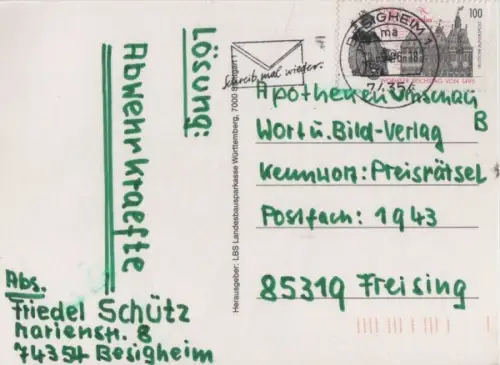 Lösung:
Abwehrkraefte
Abs.
Friedel Schütz
Marienstr. 8
74354 Besigheim
Herausgeber: LBS Landesbausparkasse Württemberg, 7000 Stuttgart 1
schreib mal wieder.
BESIGHEIM 1
ma
74354
100
DEUTSCHE BUNDESPOST
WORMSER REICHSTAG VON 1495
Apotheken Umschau
B
Wort u. Bild-Verlag
Kennwort: Preisrätsel
Postfach: 1943
85319 Freising